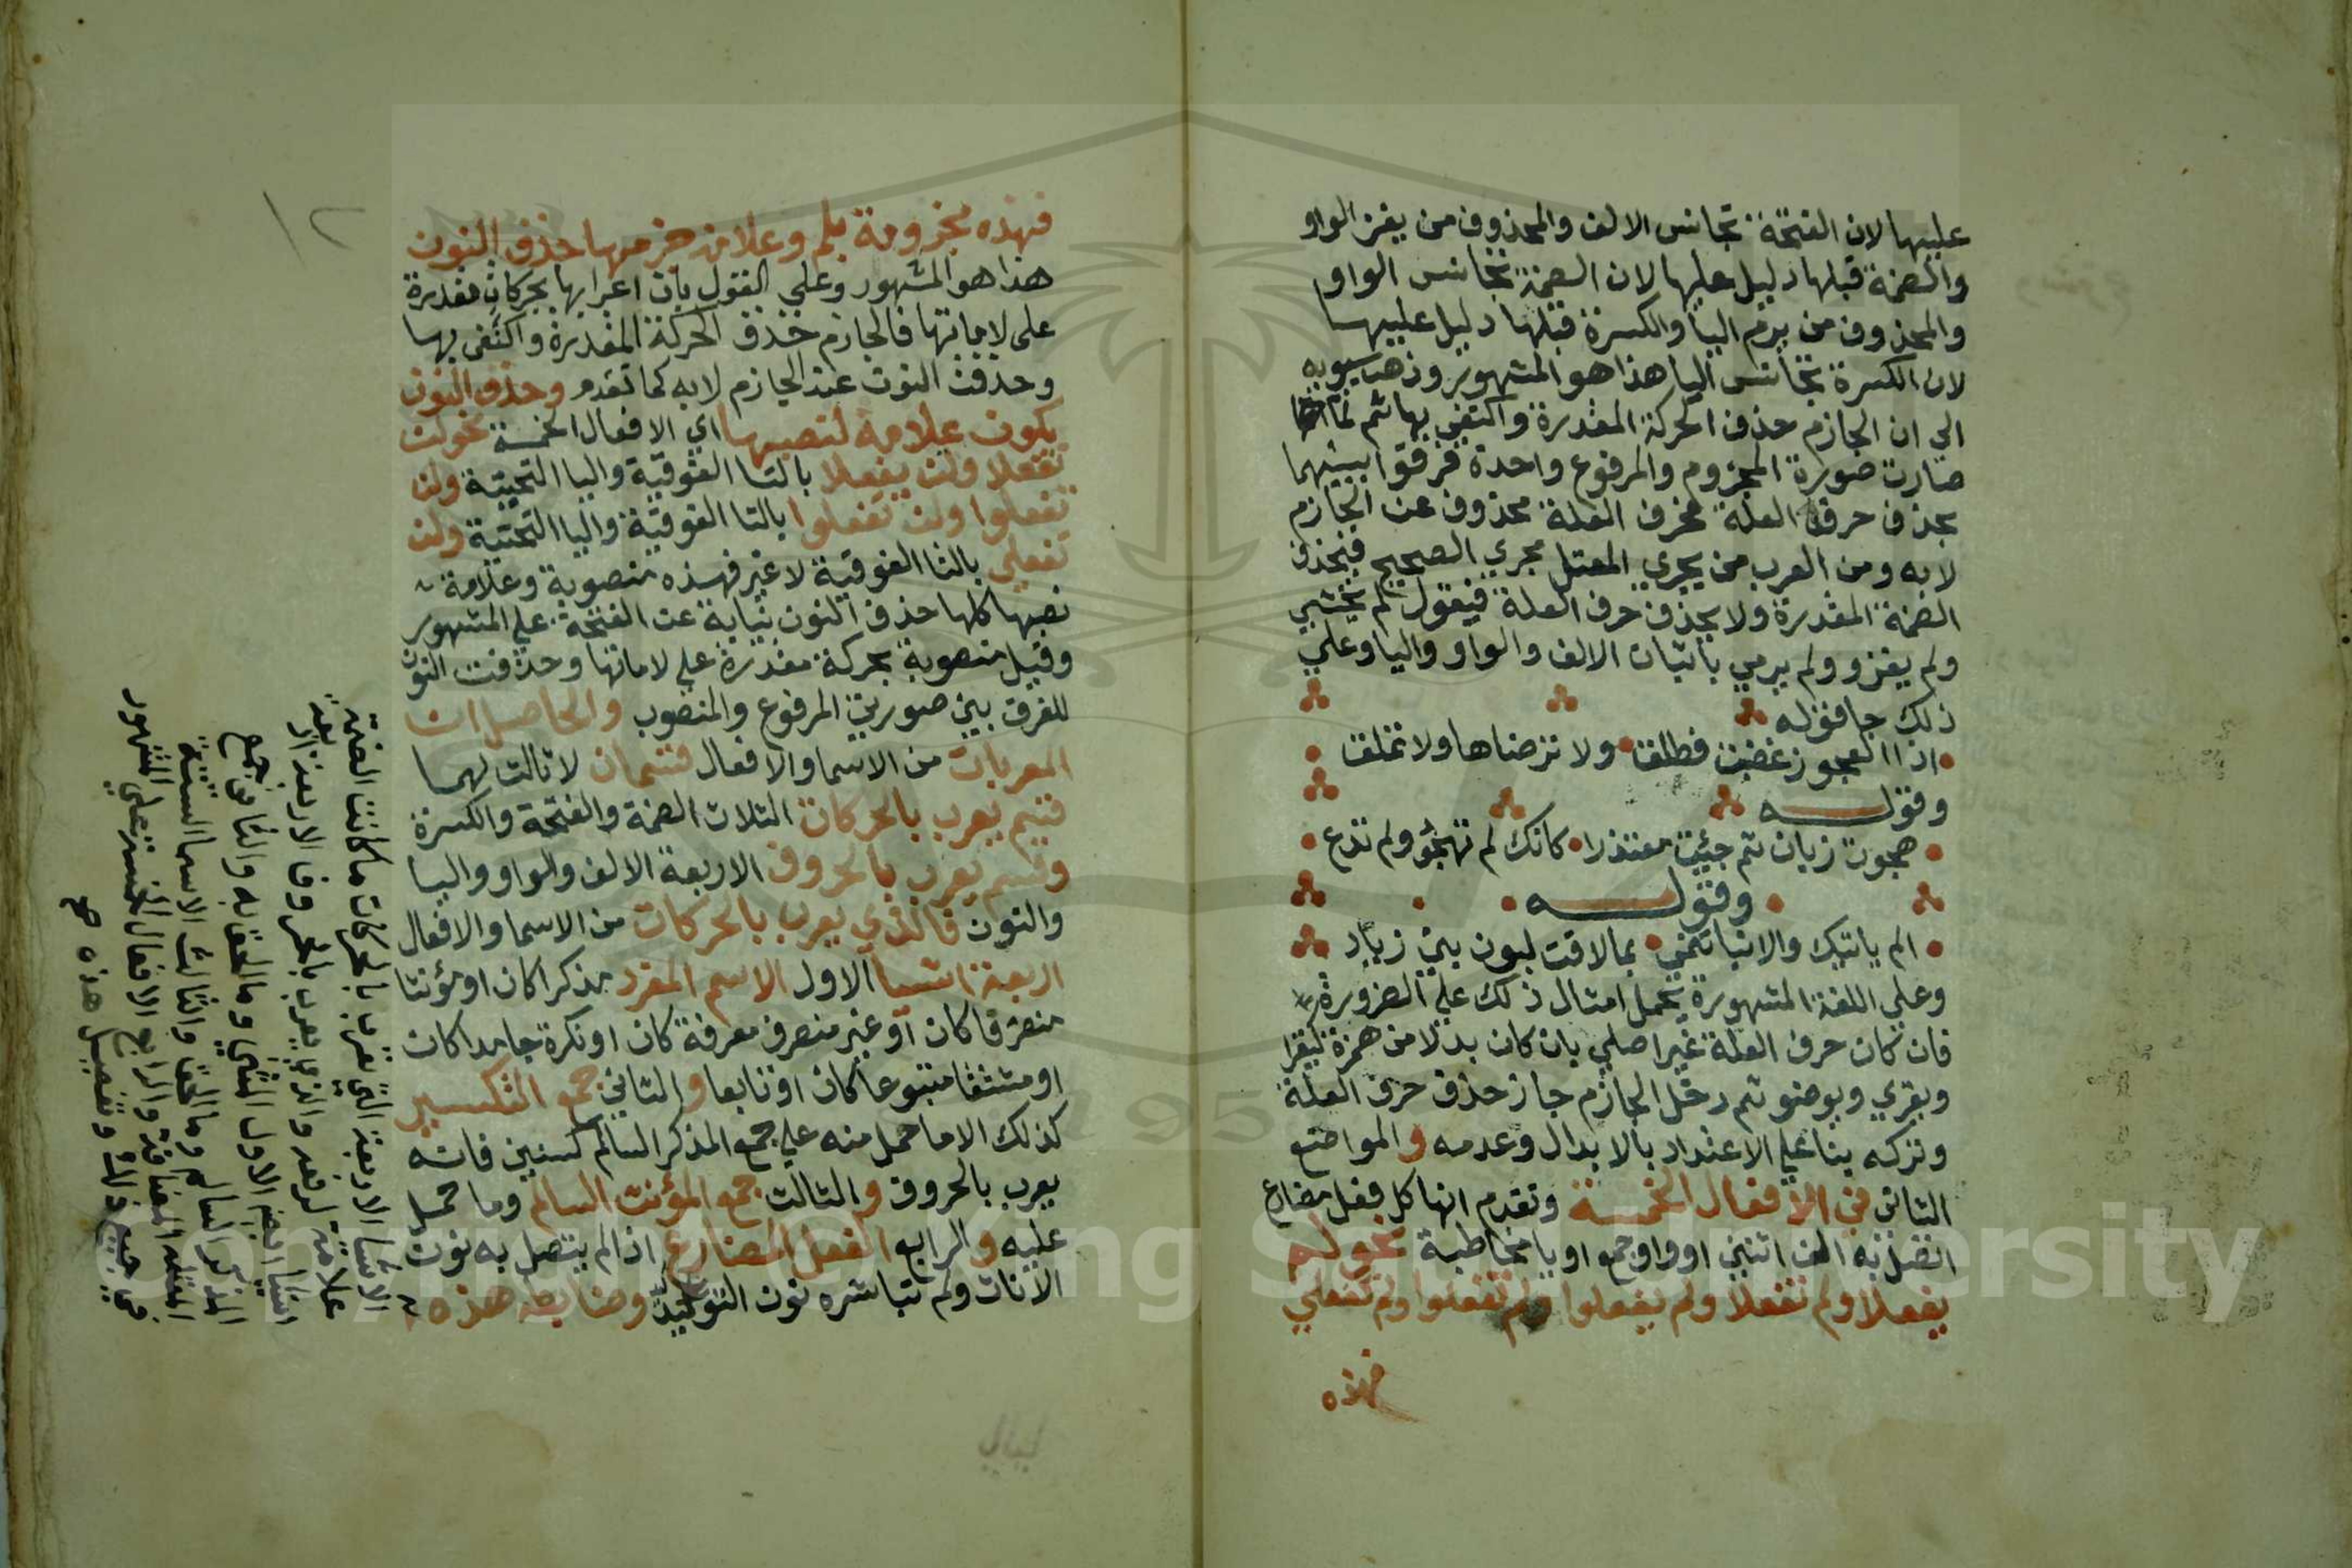 عليها لان الفتحة تجانس الالف والمحذوف من يغز الواو
والضمة قبلها دليل عليها لان الضمة تجانس الواو
والمحذوف من يرم اليا والكسرة قبلها دليل عليها
لان الكسرة تجانس اليا هذا هو المشهور وذهب سيبويه
الي ان الجازم حذف الحركة المقدرة واكتفي بها ثم لما
صارت صورة المجزوم والمرفوع واحدة فرقوا بينهما
بحذف حرف العلة فحرف العلة محذوف عند الجازم
لا به ومن العرب من يجري المعتل مجري الصحيح فيحذف
الضمة المقدرة ولا يحذف حرف العلة فيقول لم يخشي
ولم يغزو ولم يرمي باثبات الالف والواو واليا وعلي
ذلك جا قوله
اذا العجوز غضبت فطلق ولا ترضاها ولا تملق
وقوله
هجوت زبان ثم جئت معتذرا كانك لم تهجو ولم تدع
وقوله
الم ياتيك والانبا تنمي بما لاقت لبون بني زياد
وعلي اللغة المشهورة يحمل امثال ذلك علي الضرورة
فان كان حرف العلة غير اصلي بان كان بدلا من همزة كيقرا
ويقري ويوضو ثم دخل الجازم جاز حذف حرف العلة
وتركه بنا علي الاعتداد بالابدال وعدمه والمواضع
الثاني في الافعال الخمسة وتقدم انها كل فعل مضارع
اتصل به الف اثنين او واو جمع او يا مخاطبة نحو لم
يفعلا ولم تفعلا ولم يفعلوا ولم تفعلوا ولم تفعلي
فهذه
١٢
فهذه مجزومة بلم وعلامة جزمها حذف النون
هذا هو المشهور وعلي القول بان اعرابها بحركات مقدرة
على لاماتها فالجازم حذف الحركة المقدرة واكتفى بها
وحذفت النون عند الجازم لا به كما تقدم وحذف النون
يكون علامة لنصبها اي الافعال الخمسة نحو لن
تفعلا ولن يفعلا بالتا الفوقية واليا التحتية ولن
تفعلوا ولن يفعلوا بالتا الفوقية واليا التحتية ولن
تفعلي بالتا الفوقية لا غير فهذه منصوبة وعلامة
نصبها كلها حذف النون نيابة عن الفتحة علي المشهور
وقيل منصوبة بحركة مقدرة علي لاماتها وحذفت النون
للفرق بين صورتي المرفوع والمنصوب والحاصل ان
المعربات من الاسما والافعال قسمان لا ثالث لهما
قسم يعرب بالحركات الثلاث الضمة والفتحة والكسرة
وقسم يعرب بالحروف الاربعة الالف والواو واليا
والنون فالذي يعرب بالحركات من الاسما والافعال
اربعة اشيا الاول الاسم المفرد مذكرا كان او مؤنثا
منصرفا كان او غير منصرف معرفة كان او نكرة جامدا كان
او مشتقا متبوعا كان او تابعا والثاني جمع التكسير
كذلك الا ما حمل منه علي جمع المذكر السالم كسنين فانه
يعرب بالحروف والثالث جمع المؤنث السالم وما حمل
عليه والرابع الفعل المضارع اذا لم يتصل به نون
الاناث ولم تباشره نون التوكيد وضابط هذه
الاشيا الاربعة التي تعرب بالحركات ما كانت الضمة
علامة لرفعه والذي يعرب بالحروف الاربعة اربعة
اشيا ايضا الاول المثني وما الحق به والثاني جمع
المذكر السالم وما الحق والثالث الاسما الستة
المعتلة المضافة والرابع الافعال الخمسة علي المشهور
في جميع ذلك وتفصيل هذه صح